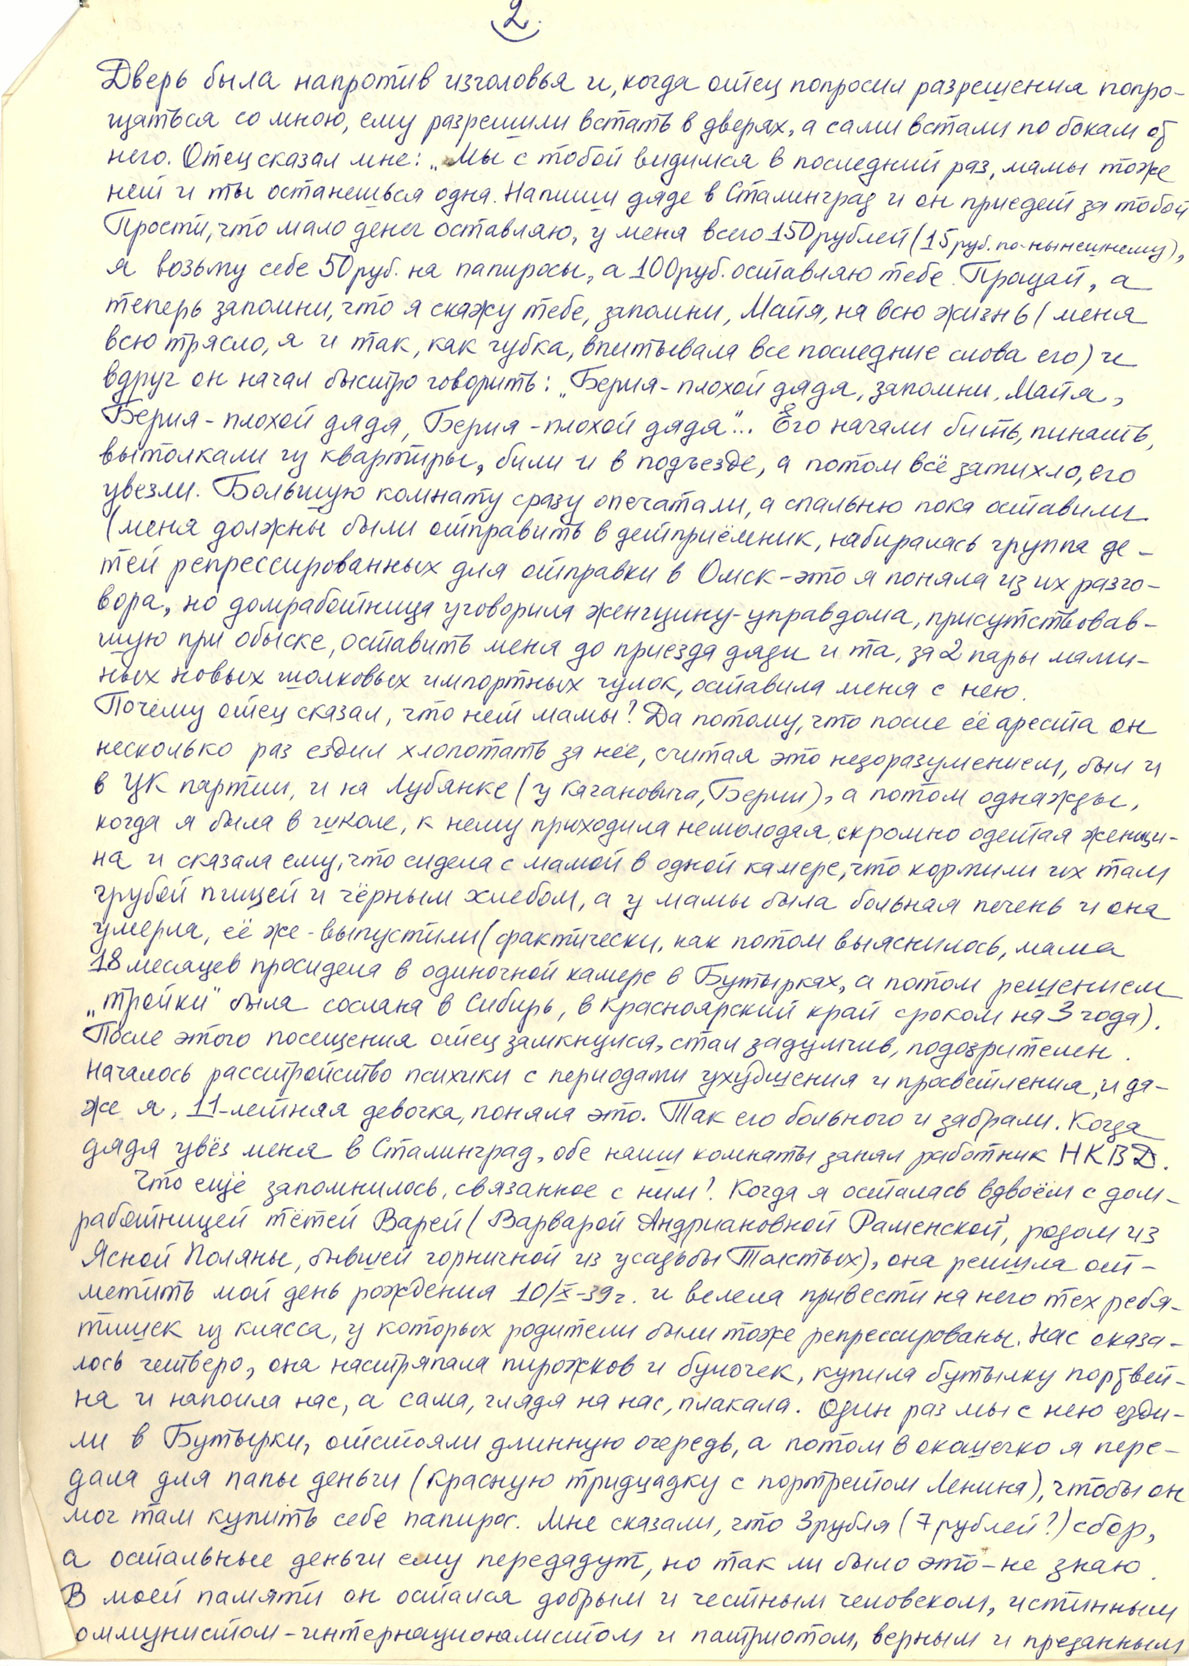 2.
Дверь была напротив изголовья и, когда отец попросил разрешения попро-
щаться со мною, ему разрешили встать в дверях, а сами встали по бокам от
него. Отец сказал мне: „Мы с тобой видимся в последний раз, мамы тоже
нет и ты останешься одна. Напиши дяде в Сталинград и он приедет за тобой
Прости, что мало денег оставляю, у меня всего 150 рублей (15 руб. по-нынешнему),
я возьму себе 50 руб. на папиросы, а 100 руб. оставляю тебе. Прощай, а
теперь запомни, что я скажу тебе, запомни, Майя, на всю жизнь (меня
всю трясло, я и так, как губка, впитывала все последние слова его) и
вдруг он начал быстро говорить: „Берия - плохой дядя, запомни, Майя,
Берия - плохой дядя, Берия - плохой дядя"... Его начали бить, пинать,
вытолкали из квартиры, били и в подъезде, а потом всё затихло, его
увезли. Большую комнату сразу опечатали, а спальню пока оставили
(меня должны были отправить в детприёмник, набиралась группа де-
тей репрессированных для отправки в Омск - это я поняла из их разго-
вора, но домработница уговорила женщину-управдома, присутствовав-
шую при обыске, оставить меня до приезда дяди и та, за 2 пары мами-
ных новых шолковых импортных чулок, оставила меня с нею.
Почему отец сказал, что нет мамы? Да потому, что после её ареста он
несколько раз ездил хлопотать за неё, считая это недоразумением, был и
в ЦК партии, и на Лубянке (у Кагановича, Берии), а потом однажды,
когда я была в школе, к нему приходила немолодая, скромно одетая женщи-
на и сказала ему, что сидела с мамой в одной камере, что кормили их там
грубой пищей и чёрным хлебом, а у мамы была больная печень и она
умерла, её же - выпустили (фактически, как потом выяснилось, мама
18 месяцев просидела в одиночной камере в Бутырках, а потом решением
„тройки" была сослана в Сибирь, в Красноярский край сроком на 3 года).
После этого посещения отец замкнулся, стал задумчив, подозрителен.
Началось расстройство психики с периодами ухудшения и просветления, и да-
же я, 11-летняя девочка, поняла это. Так его больного и забрали. Когда
дядя увёз меня в Сталинград, обе наши комнаты занял работник НКВД.
Что ещё запомнилось, связанное с ним? Когда я осталась вдвоём с дом-
работницей тётей Варей (Варварой Андриановной Раменской, родом из
Ясной Поляны, бывшей горничной из усадьбы Толстых), она решила от-
метить мой день рождения 10/X-39г. и велела привести на него тех ребя-
тишек из класса, у которых родители были тоже репрессированы. Нас оказа-
лось четверо, она настряпала пирожков и булочек, купила бутылку портвей-
на и напоила нас, а сама, глядя на нас, плакала. Один раз мы с нею езди-
ли в Бутырки, отстояли длинную очередь, а потом в окошечко я пере-
дала для папы деньги (красную тридцадку с портретом Ленина), чтобы он
мог там купить себе папирос. Мне сказали, что 3 рубля (7 рублей?) сбор,
а остальные деньги ему передадут, но так ли было это - не знаю.
В моей памяти он остался добрым и честным человеком, истинным
оммунистом - интернационалистом и патриотом, верным и преданным